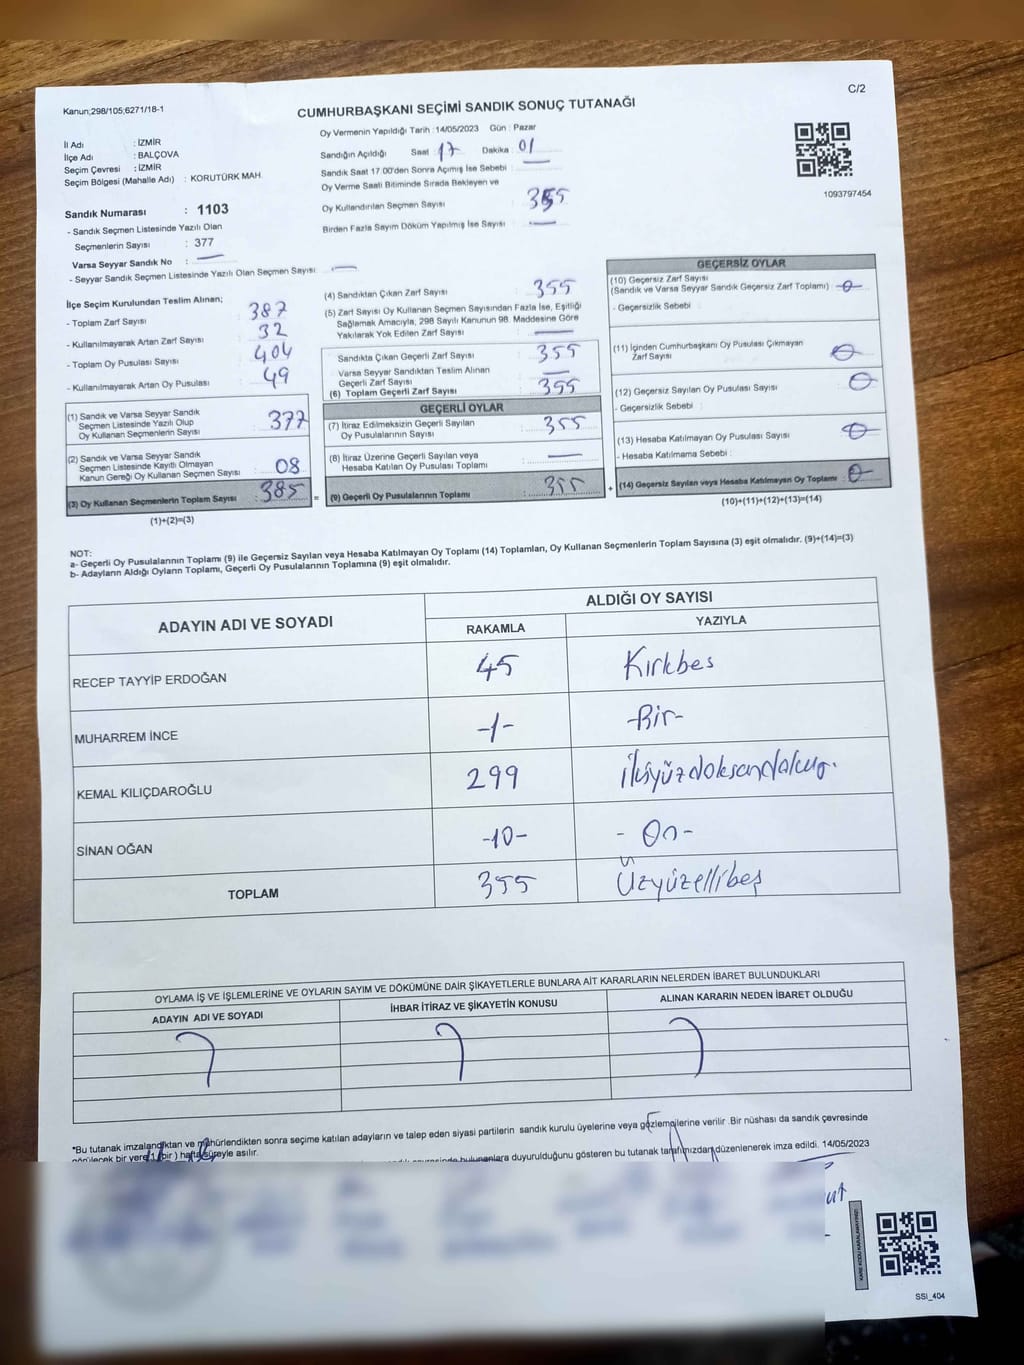 Kanun;298/105;6271/18-1
C/2
CUMHURBAŞKANI SEÇİMİ SANDIK SONUÇ TUTANAĞI
İl Adı : İZMİR
İlçe Adı : BALÇOVA
Seçim Çevresi : İZMİR
Seçim Bölgesi (Mahalle Adı) : KORUTÜRK MAH.
Sandık Numarası : 1103
- Sandık Seçmen Listesinde Yazılı Olan
Seçmenlerin Sayısı : 377
Varsa Seyyar Sandık No : —
- Seyyar Sandık Seçmen Listesinde Yazılı Olan Seçmen Sayısı: —
Oy Vermenin Yapıldığı Tarih : 14/05/2023 Gün : Pazar
Sandığın Açıldığı Saat : 17 Dakika : 01
Sandık Saat 17.00'den Sonra Açımış İse Sebebi : —
Oy Verme Saati Bitiminde Sırada Bekleyen ve
Oy Kullandırılan Seçmen Sayısı : 355
Birden Fazla Sayım Döküm Yapılmış İse Sayısı : —
1093797454
İlçe Seçim Kurulundan Teslim Alınan;
- Toplam Zarf Sayısı : 387
- Kullanılmayarak Artan Zarf Sayısı : 32
- Toplam Oy Pusulası Sayısı : 404
- Kullanılmayarak Artan Oy Pusulası : 49
(1) Sandık ve Varsa Seyyar Sandık
Seçmen Listesinde Yazılı Olup
Oy Kullanan Seçmenlerin Sayısı : 377
(2) Sandık ve Varsa Seyyar Sandık
Seçmen Listesinde Kayıtlı Olmayan
Kanun Gereği Oy Kullanan Seçmen Sayısı : 08
(3) Oy Kullanan Seçmenlerin Toplam Sayısı : 385 =
(1)+(2)=(3)
(4) Sandıktan Çıkan Zarf Sayısı : 355
(5) Zarf Sayısı Oy Kullanan Seçmen Sayısından Fazla İse, Eşitliği
Sağlamak Amacıyla, 298 Sayılı Kanunun 98. Maddesine Göre
Yakılarak Yok Edilen Zarf Sayısı : —
Sandıkta Çıkan Geçerli Zarf Sayısı : 355
Varsa Seyyar Sandıktan Teslim Alınan
Geçerli Zarf Sayısı : —
(6) Toplam Geçerli Zarf Sayısı : 355
GEÇERLİ OYLAR
(7) İtiraz Edilmeksizin Geçerli Sayılan
Oy Pusulalarının Sayısı : 355
(8) İtiraz Üzerine Geçerli Sayılan veya
Hesaba Katılan Oy Pusulası Toplamı : —
(9) Geçerli Oy Pusulalarının Toplamı : 355 +
GEÇERSİZ OYLAR
(10) Geçersiz Zarf Sayısı
(Sandık ve Varsa Seyyar Sandık Geçersiz Zarf Toplamı) : 0
- Geçersizlik Sebebi :
(11) İçinden Cumhurbaşkanı Oy Pusulası Çıkmayan
Zarf Sayısı : 0
(12) Geçersiz Sayılan Oy Pusulası Sayısı : 0
- Geçersizlik Sebebi :
(13) Hesaba Katılmayan Oy Pusulası Sayısı : 0
- Hesaba Katılmama Sebebi :
(14) Geçersiz Sayılan veya Hesaba Katılmayan Oy Toplamı : 0
(10)+(11)+(12)+(13)=(14)
NOT:
a- Geçerli Oy Pusulalarının Toplamı (9) ile Geçersiz Sayılan veya Hesaba Katılmayan Oy Toplamı (14) Toplamları, Oy Kullanan Seçmenlerin Toplam Sayısına (3) eşit olmalıdır. (9)+(14)=(3)
b- Adayların Aldığı Oyların Toplamı, Geçerli Oy Pusulalarının Toplamına (9) eşit olmalıdır.
ADAYIN ADI VE SOYADI
ALDIĞI OY SAYISI
RAKAMLA YAZIYLA
RECEP TAYYİP ERDOĞAN 45 Kırkbes
MUHARREM İNCE -1- -Bir-
KEMAL KILIÇDAROĞLU 299 ikiyüzdoksandokuz.
SİNAN OĞAN -10- - On -
TOPLAM 355 Üzyüzellibeş
OYLAMA İŞ VE İŞLEMLERİNE VE OYLARIN SAYIM VE DÖKÜMÜNE DAİR ŞİKAYETLERLE BUNLARA AİT KARARLARIN NELERDEN İBARET BULUNDUKLARI
ADAYIN ADI VE SOYADI İHBAR İTİRAZ VE ŞİKAYETİN KONUSU ALINAN KARARIN NEDEN İBARET OLDUĞU
*Bu tutanak imzalandıktan ve mühürlendikten sonra seçime katılan adayların ve talep eden siyasi partilerin sandık kurulu üyelerine veya gözlemcilerine verilir .Bir nüshası da sandık çevresinde
görülecek bir yere 1 (bir ) hafta süreyle asılır.
bulunanlara duyurulduğunu gösteren bu tutanak tarafımızdan düzenlenerek imza edildi. 14/05/2023
SSI_404